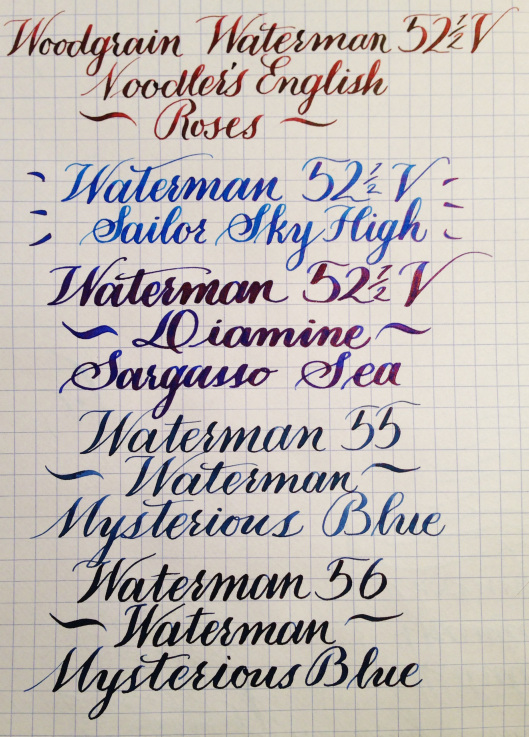 Woodgrain Waterman 52½V
Noodler's English
~ Roses ~
Waterman 52½V
Sailor Sky High
Waterman 52½V
~ Diamine ~
Sargasso Sea
Waterman 55
~ Waterman ~
Mysterious Blue
Waterman 56
~ Waterman ~
Mysterious Blue